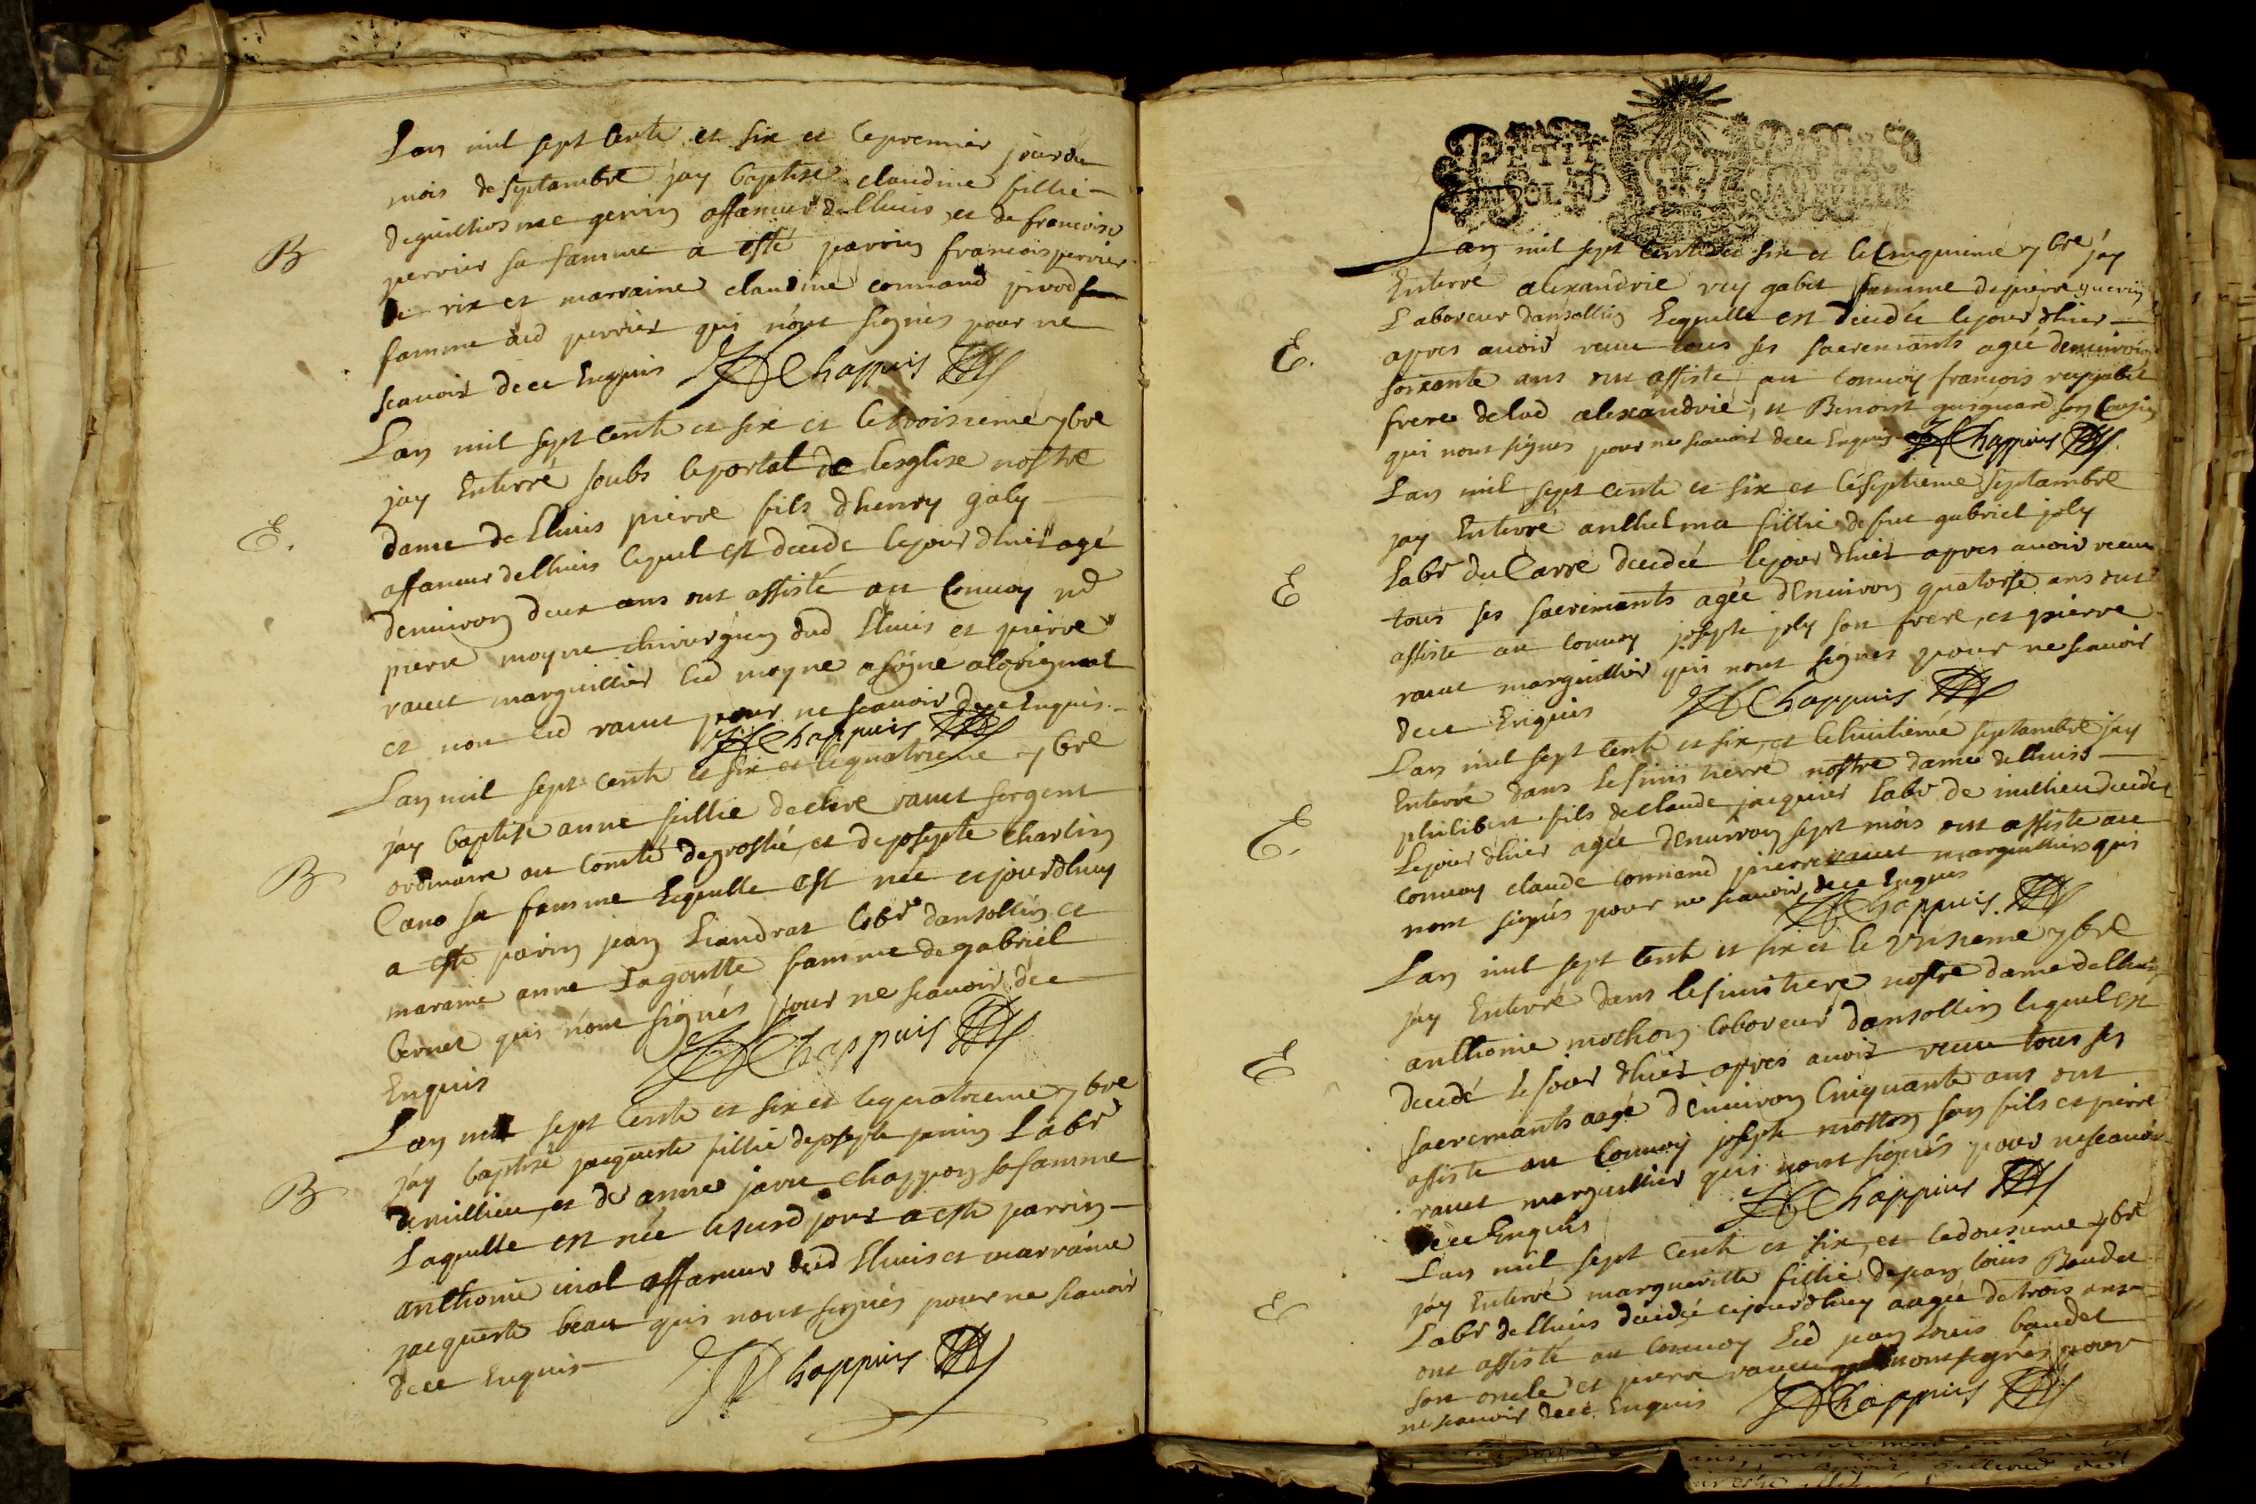 Lan mil sept Cents et six et le premier jour du
mois de septambre jay baptisé claudine fillie
de guilliosme genin affaneur de Lhuis et de francoise
B
perrier sa famme a esté parrin francois perrier
de rix et marraine claudine connand
famme dud perrier qui nont signés pour ne
scavoir de ce Enquis Chappuis
Lan mil sept cents et six et le troisieme 7bre
jay Enterré soubs le portal de lesglise nostre
dame de Lhuis pierre fils dhenry joly
E.
affaneur de Lhuis lequel est decede le jour dhier agé
denviron deux ans ont assisté au Convoy
pierre moyne chirurgien dud Lhuis et pierre
ravet marguillier led moyne a signé aloriginal
et non led ravet pour ne scavoir de ce Enquis
Chappuis
Lan mil sept cents et six et le quatrieme 7bre
jay baptisé anne fillie de clere ravet sergent
B
ordinaire au comté de groslié, et de josepte charlin
Cano sa famme Lequelle est née ce jourdhuy
a esté parin jean Liandrat Labr dansollin et
maraine anne Lagoutte famme de gabriel
bernet qui nont signés pour ne scavoir de ce
Enquis Chappuis
Lan mil sept Cents et six et le quatrieme 7bre
jay baptisé jacqueste fillie de josepte janin Labr
B
de millieu, et de anne janne chappon sa famme
Laquelle est née le susd jour a esté parrin
anthoine inal affaneur dud Lhuis et marraine
jacqueste beau qui nont signés pour ne scavoir
de ce Enquis Chappuis
PETIT PAPIER
Lan mil sept Cents et six et le Cinquieme 7bre jay
Enterré alexandrie rey gabet famme de pierre guerin
Laboreur dansollin Lequelle est decedée le jour dhier
E.
apres avoir receu tous ses sacremants agée denviron
soixante ans ont assisté au convoy francois rey gabet
frere de lad alexandrie, et Benoist guignard son Cousin
qui nont signes pour ne scavoir de ce Enquis Chappuis
Lan mil sept cents et six et le septieme septambre
jay Enterré anthelma fillie de feu gabriel joly
E
Labr du Carre decedée le jour dhier apres avoir receu
tous ses sacremants agée denviron quatorse ans ont
assiste au convoy joseph joly son frere, et pierre
ravet marguillier qui nont signes pour ne scavoir
de ce Enquis Chappuis
Lan mil sept cents et six, et le huitieme septambre jay
Enterré dans le simistierre nostre dame de Lhuis
E.
philibert fils de claude jacquier Labr de millieu decedé
le jour dhier agée denviron sept mois ont assiste au
convoy claude connand pierre ravet marguillier qui
nont signés pour ne scavoir de ce Enquis
Chappuis
Lan mil sept cents et six et le unsieme 7bre
jay Enterré dans le simistiere nostre dame de Lhuis
anthoine mothon laboreur dansollin lequel est
E
decedé le jour dhier apres avoir receu tous ses
sacremants aagé denviron Cinquante ans ont
assiste au Convoy joseph motton son fils et pierre
ravet marguillier qui nont signés pour ne scavoir
de ce Enquis Chappuis
Lan mil sept Cents et six, et le dousieme 7bre
jay Enterré margueritte fillie de jean louis Baudet
E
Labr de Lhuis decedée ce jourdhuy aagée de trois ans
ont assisté au convoy Led jean Louis baudet
son oncle et pierre ravet nont signés pour
ne scavoir de ce Enquis Chappuis